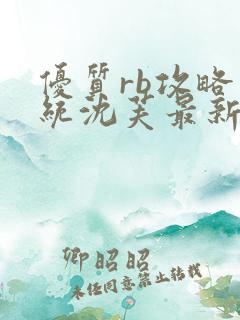 優質rb攻略
統沈芙最新
卿昭昭
未经同意禁止转载